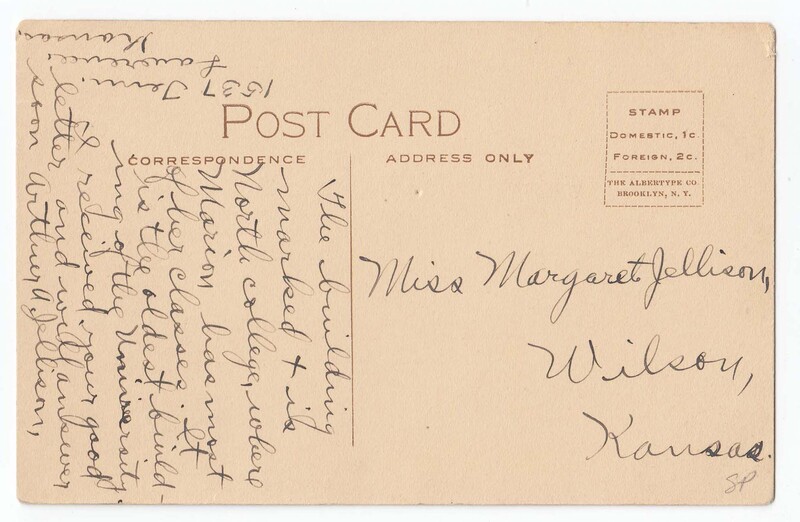 1537 Tenn.
Lawrence
Kansas,
POST CARD
CORRESPONDENCE
ADDRESS ONLY
STAMP
DOMESTIC, 1c.
FOREIGN, 2c.
THE ALBERTYPE CO.
BROOKLYN, N. Y.
The building
marked + is
North college, where
Marion has most
of her classes. It
is the oldest build-
ing of the University.
I received your good
letter and will answer
soon Arthur A Jellison,
Miss Margaret Jellison,
Wilson,
Kansas.
SP